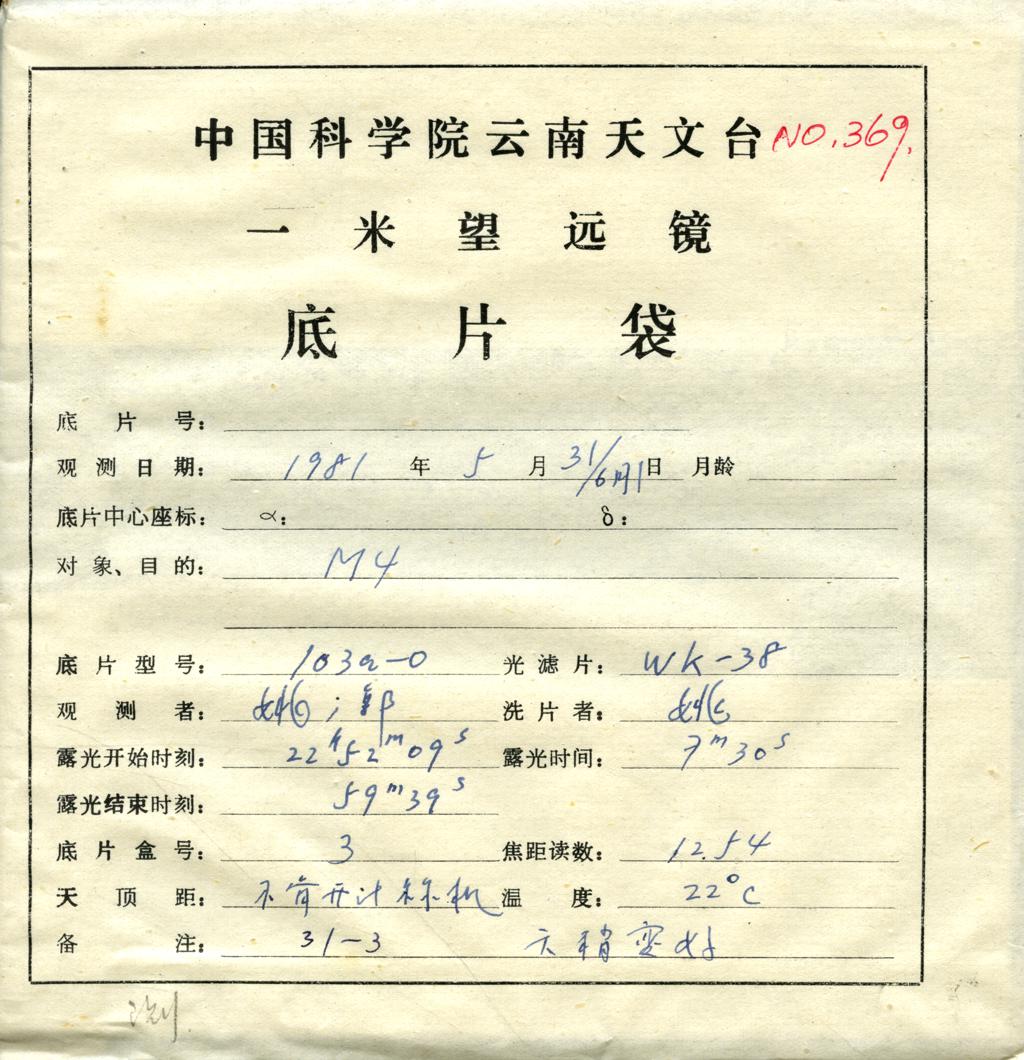 中国科学院云南天文台 NO.369.
一米望远镜
底片袋
底片号：
观测日期： 1981 年 5 月 31/6月1日 月龄
底片中心座标： α： δ：
对象、目的： M4
底片型号： 103a-O 光滤片： WK-38
观测者： 姚；郭 洗片者： 姚
露光开始时刻： 22h52m09s 露光时间： 7m30s
露光结束时刻： 59m39s
底片盒号： 3 焦距读数： 12.54
天顶距： 不肯开计标机 温度： 22°C
备注： 31-3 天稍变好